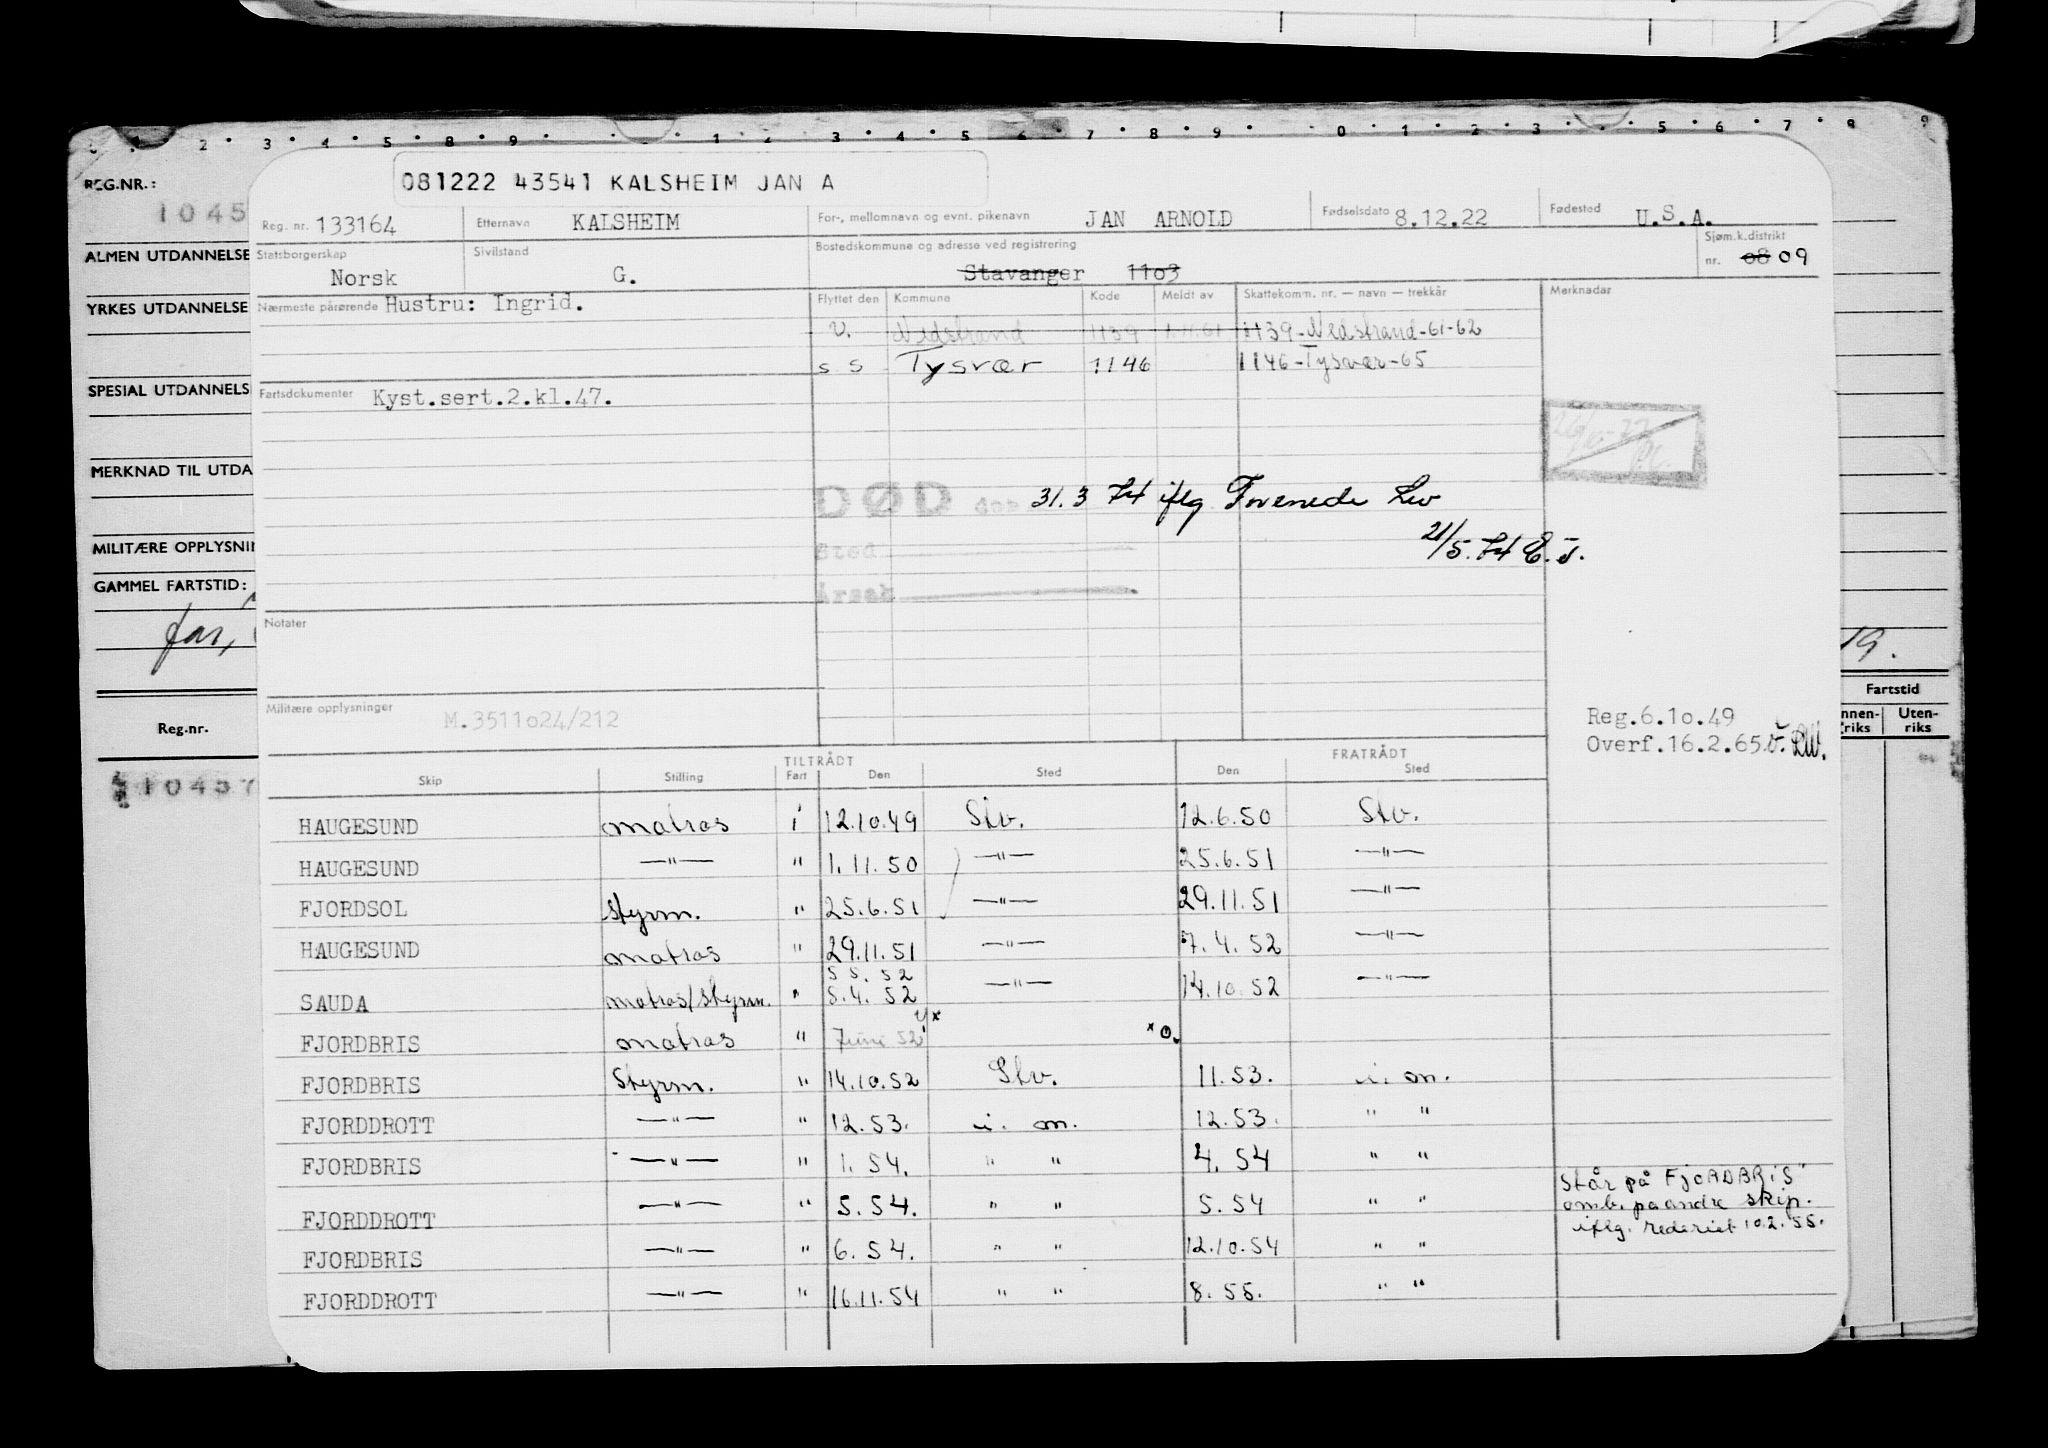 REG.NR.:
1045
ALMEN UTDANNELSE
YRKES UTDANNELSE
SPESIAL UTDANNELS
MERKNAD TIL UTDA
MILITÆRE OPPLYSNIN
GAMMEL FARTSTID:
far,
19.
Reg.nr.
10457
Fartstid
nnen-
riks
Uten-
riks
081222 43541 KALSHEIM JAN A
Reg. nr. 133164 Etternavn KALSHEIM For-, mellomnavn og evnt. pikenavn JAN ARNOLD Fødselsdato 8.12.22 Fødested U.S.A.
Statsborgerskap Norsk Sivilstand G. Bostedskommune og adresse ved registrering Stavanger 11o3 Sjøm.k.distrikt nr. 08 09
Nærmeste pårørende Hustru: Ingrid. Flyttet den Kommune Kode Meldt av Skattekomm. nr. — navn — trekkår Merknadar
v. Nedstrand 1139 1.11.61 1139-Nedstrand-61-62
s s Tysvær 1146 1146-Tysvær-65
Fartsdokumenter Kyst.sert.2.kl.47.
DØD den 31.3 74 iflg Forenede Liv
21/5.74 E.J.
Sted
Årsak
Notater
Militære opplysninger M.3511o24/212
Reg.6.1o.49
Overf.16.2.65
TILTRÅDT FRATRÅDT
Skip Stilling Fart Den Sted Den Sted
HAUGESUND matros i 12.10.49 Stv. 12.6.50 Stv.
HAUGESUND —"— " 1.11.50 —"— 25.6.51 —"—
FJORDSOL Styrm. " 25.6.51 —"— 29.11.51 —"—
HAUGESUND matros " 29.11.51 —"— 7.4.52 —"—
5 5. 52
SAUDA matros/Styrm. " 8.4. 52 —"— 14.10.52 —"—
FJORDBRIS matros " Juni 52
FJORDBRIS Styrm. " 14.10.52 Stv. 11.53. i. m.
FJORDDROTT —"— " 12.53. i. m. 12.53. " "
FJORDBRIS —"— " 1. 54. " " 4. 54 " "
FJORDDROTT —"— " 5.54. " " 5.54 " "
Står på FJORDBRIS"
omb. på andre skip.
iflg. rederiet 10.2.55.
FJORDBRIS —"— " 6. 54. " " 12.10.54 " "
FJORDDROTT —"— " 16.11.54 " " 8. 55. " "